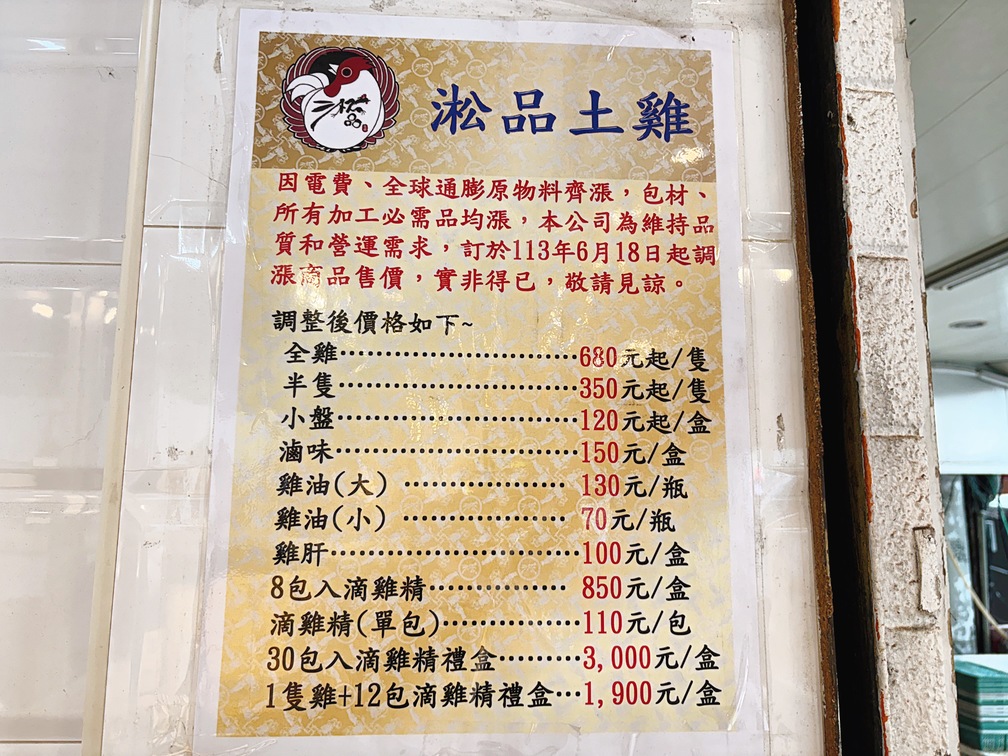 淞品土雞
因電費、全球通膨原物料齊漲，包材、
所有加工必需品均漲，本公司為維持品
質和營運需求，訂於113年6月18日起調
漲商品售價，實非得已，敬請見諒。
調整後價格如下~
全雞…………………………680元起/隻
半隻…………………………350元起/隻
小盤…………………………120元起/盒
滷味…………………………150元/盒
雞油(大) ………………… 130元/瓶
雞油(小) ………………… 70元/瓶
雞肝…………………………100元/盒
8包入滴雞精……………… 850元/盒
滴雞精(單包)………………110元/包
30包入滴雞精禮盒………3,000元/盒
1隻雞+12包滴雞精禮盒…1,900元/盒